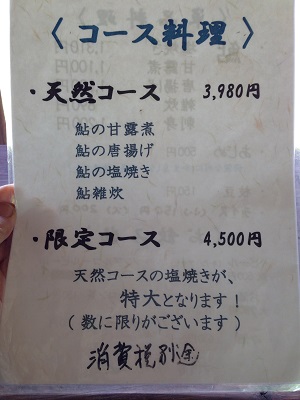 〈 コース料理 〉
・天然コース 3,980円
鮎の甘露煮
鮎の唐揚げ
鮎の塩焼き
鮎雑炊
・限定コース 4,500円
天然コースの塩焼きが、
特大となります！
（ 数に限りがございます ）
消費税別途